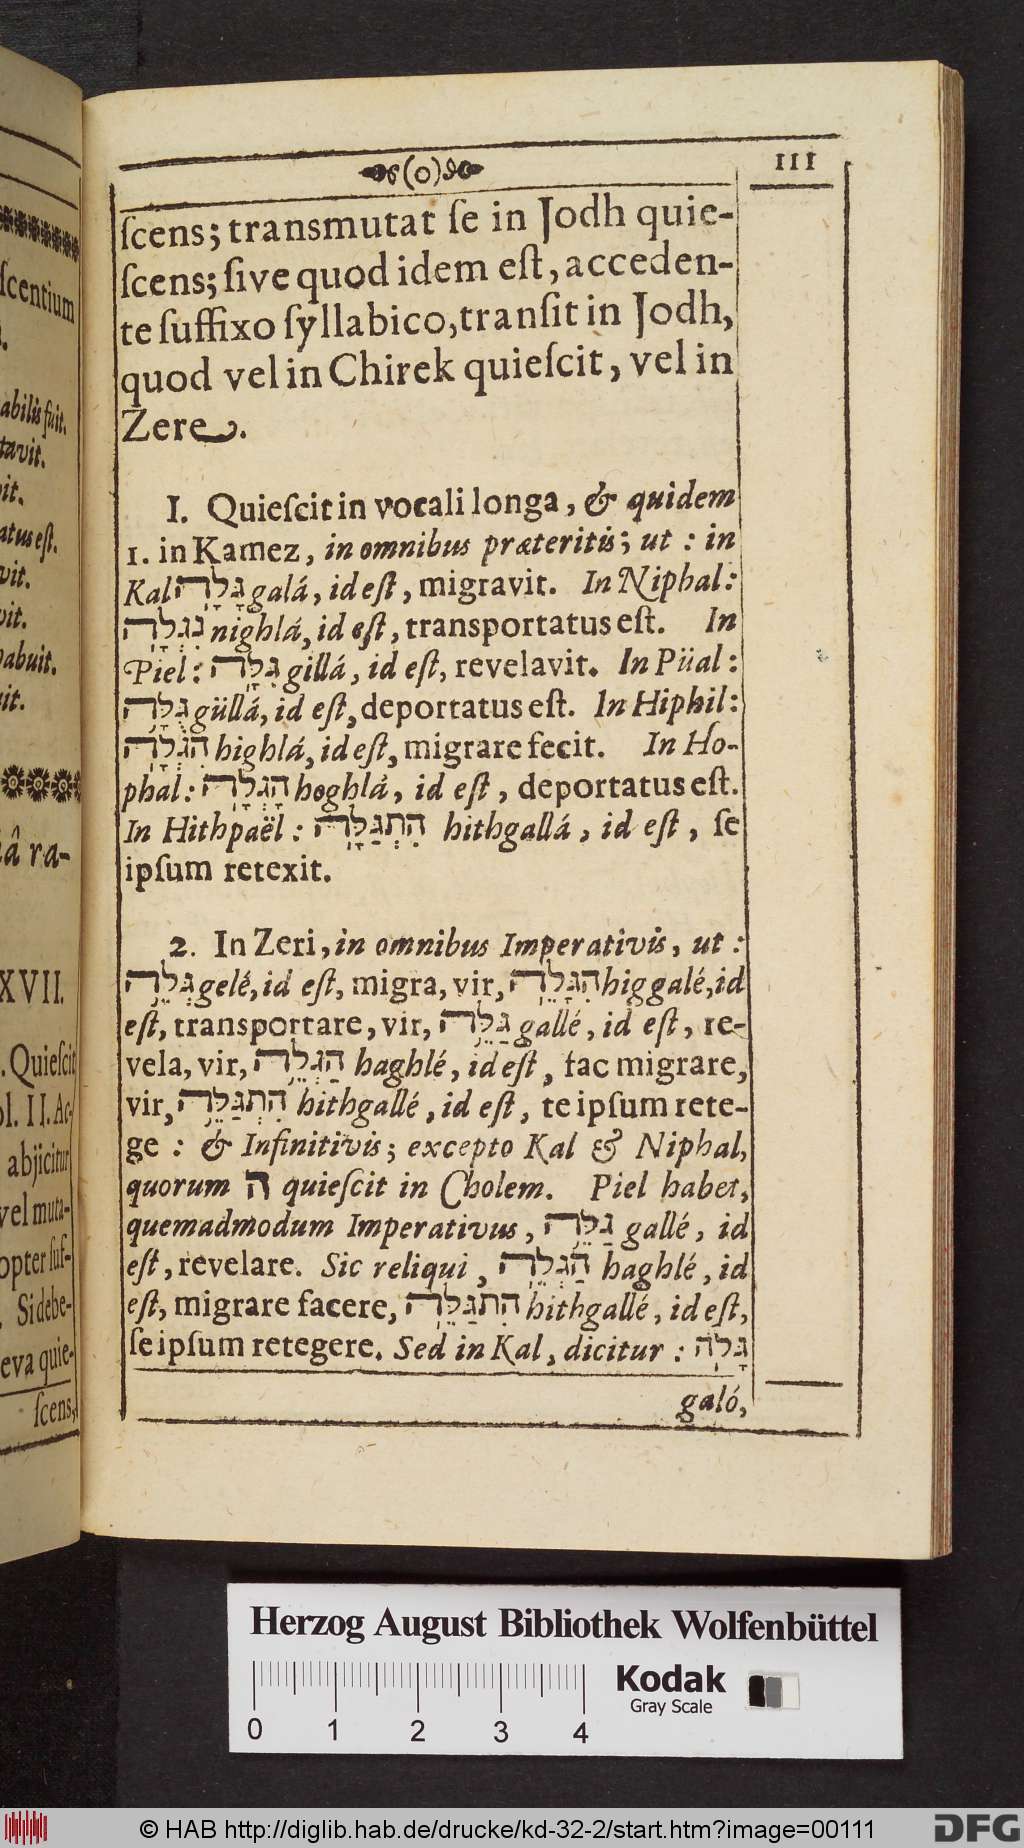 (o)
111
ſcens; transmutat ſe in Jodh quie-
ſcens; ſive quod idem eſt, acceden-
te ſuffixo ſyllabico, tranſit in Jodh,
quod vel in Chirek quieſcit, vel in
Zere.
I. Quieſcit in vocali longa, & quidem
1. in Kamez, in omnibus præteritis; ut : in
Kal גָּלָה galá, id eſt, migravit. In Niphal:
נִגְלָה nighlá, id eſt, transportatus eſt. In
Piel: גִּלָּה gillá, id eſt, revelavit. In Püal:
גֻּלָּה güllá, id eſt, deportatus eſt. In Hiphil:
הִגְלָה highlá, id eſt, migrare fecit. In Ho-
phal: הָגְלָה hoghlá, id eſt, deportatus eſt.
In Hithpaël : הִתְגַּלָּה hithgallá, id eſt, ſe
ipſum retexit.
2. In Zeri, in omnibus Imperativis, ut :
גְּלֵה gelé, id eſt, migra, vir, הִגָּלֵה higgalé, id
eſt, transportare, vir, גַּלֵּה gallé, id eſt, re-
vela, vir, הַגְלֵה haghlé, id eſt, fac migrare,
vir, הִתְגַּלֵּה hithgallé, id eſt, te ipſum rete-
ge : & Infinitivis; excepto Kal & Niphal,
quorum ה quieſcit in Cholem. Piel habet,
quemadmodum Imperativus, גַּלֵּה gallé, id
eſt, revelare. Sic reliqui, הַגְלֵה haghlé, id
eſt, migrare facere, הִתְגַּלֵּה hithgallé, id eſt,
ſe ipſum retegere. Sed in Kal, dicitur : גָּלֹה
galó,
ſcentium
abilis fuit.
tavit.
vit.
atus eſt.
vit.
vit.
habuit.
â ra-
XVII.
. Quieſcit
ol. II. Ac-
abjicitur
vel muta-
opter ſuf-
Si debe-
eva quie-
ſcens,
Herzog August Bibliothek Wolfenbüttel
Kodak
Gray Scale
0 1 2 3 4
© HAB http://diglib.hab.de/drucke/kd-32-2/start.htm?image=00111
DFG